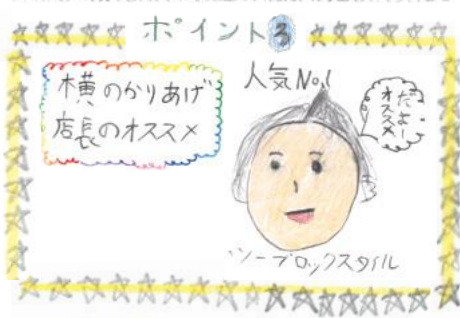 ポイント3
横のかりあげ
店長のオススメ
人気No.1
だよー
オススメ
ソーブロックスタイル